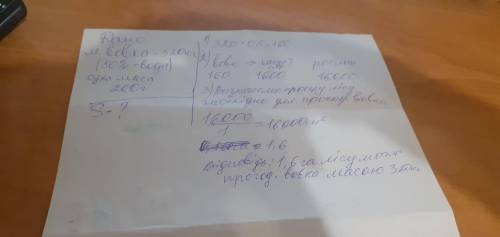 Дано
m вовка - 320кг
(50% - вода)
суха маса
200г
S - ?
1) 320·0,5=160
2) вовк → заєць → росл
160 1600 16000
3) Визначаємо площу лісу
необхідно для прогод. вовка
16000/1 = 16000 м²
= 1,6
Відповідь: 1,6 га лісу може
прогод. вовка масою